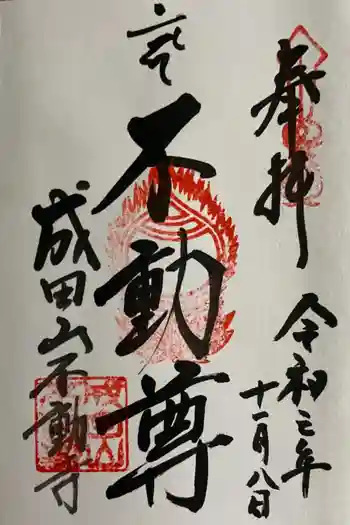 奉拝
令和三年
十一月八日
不動尊
成田山不動寺